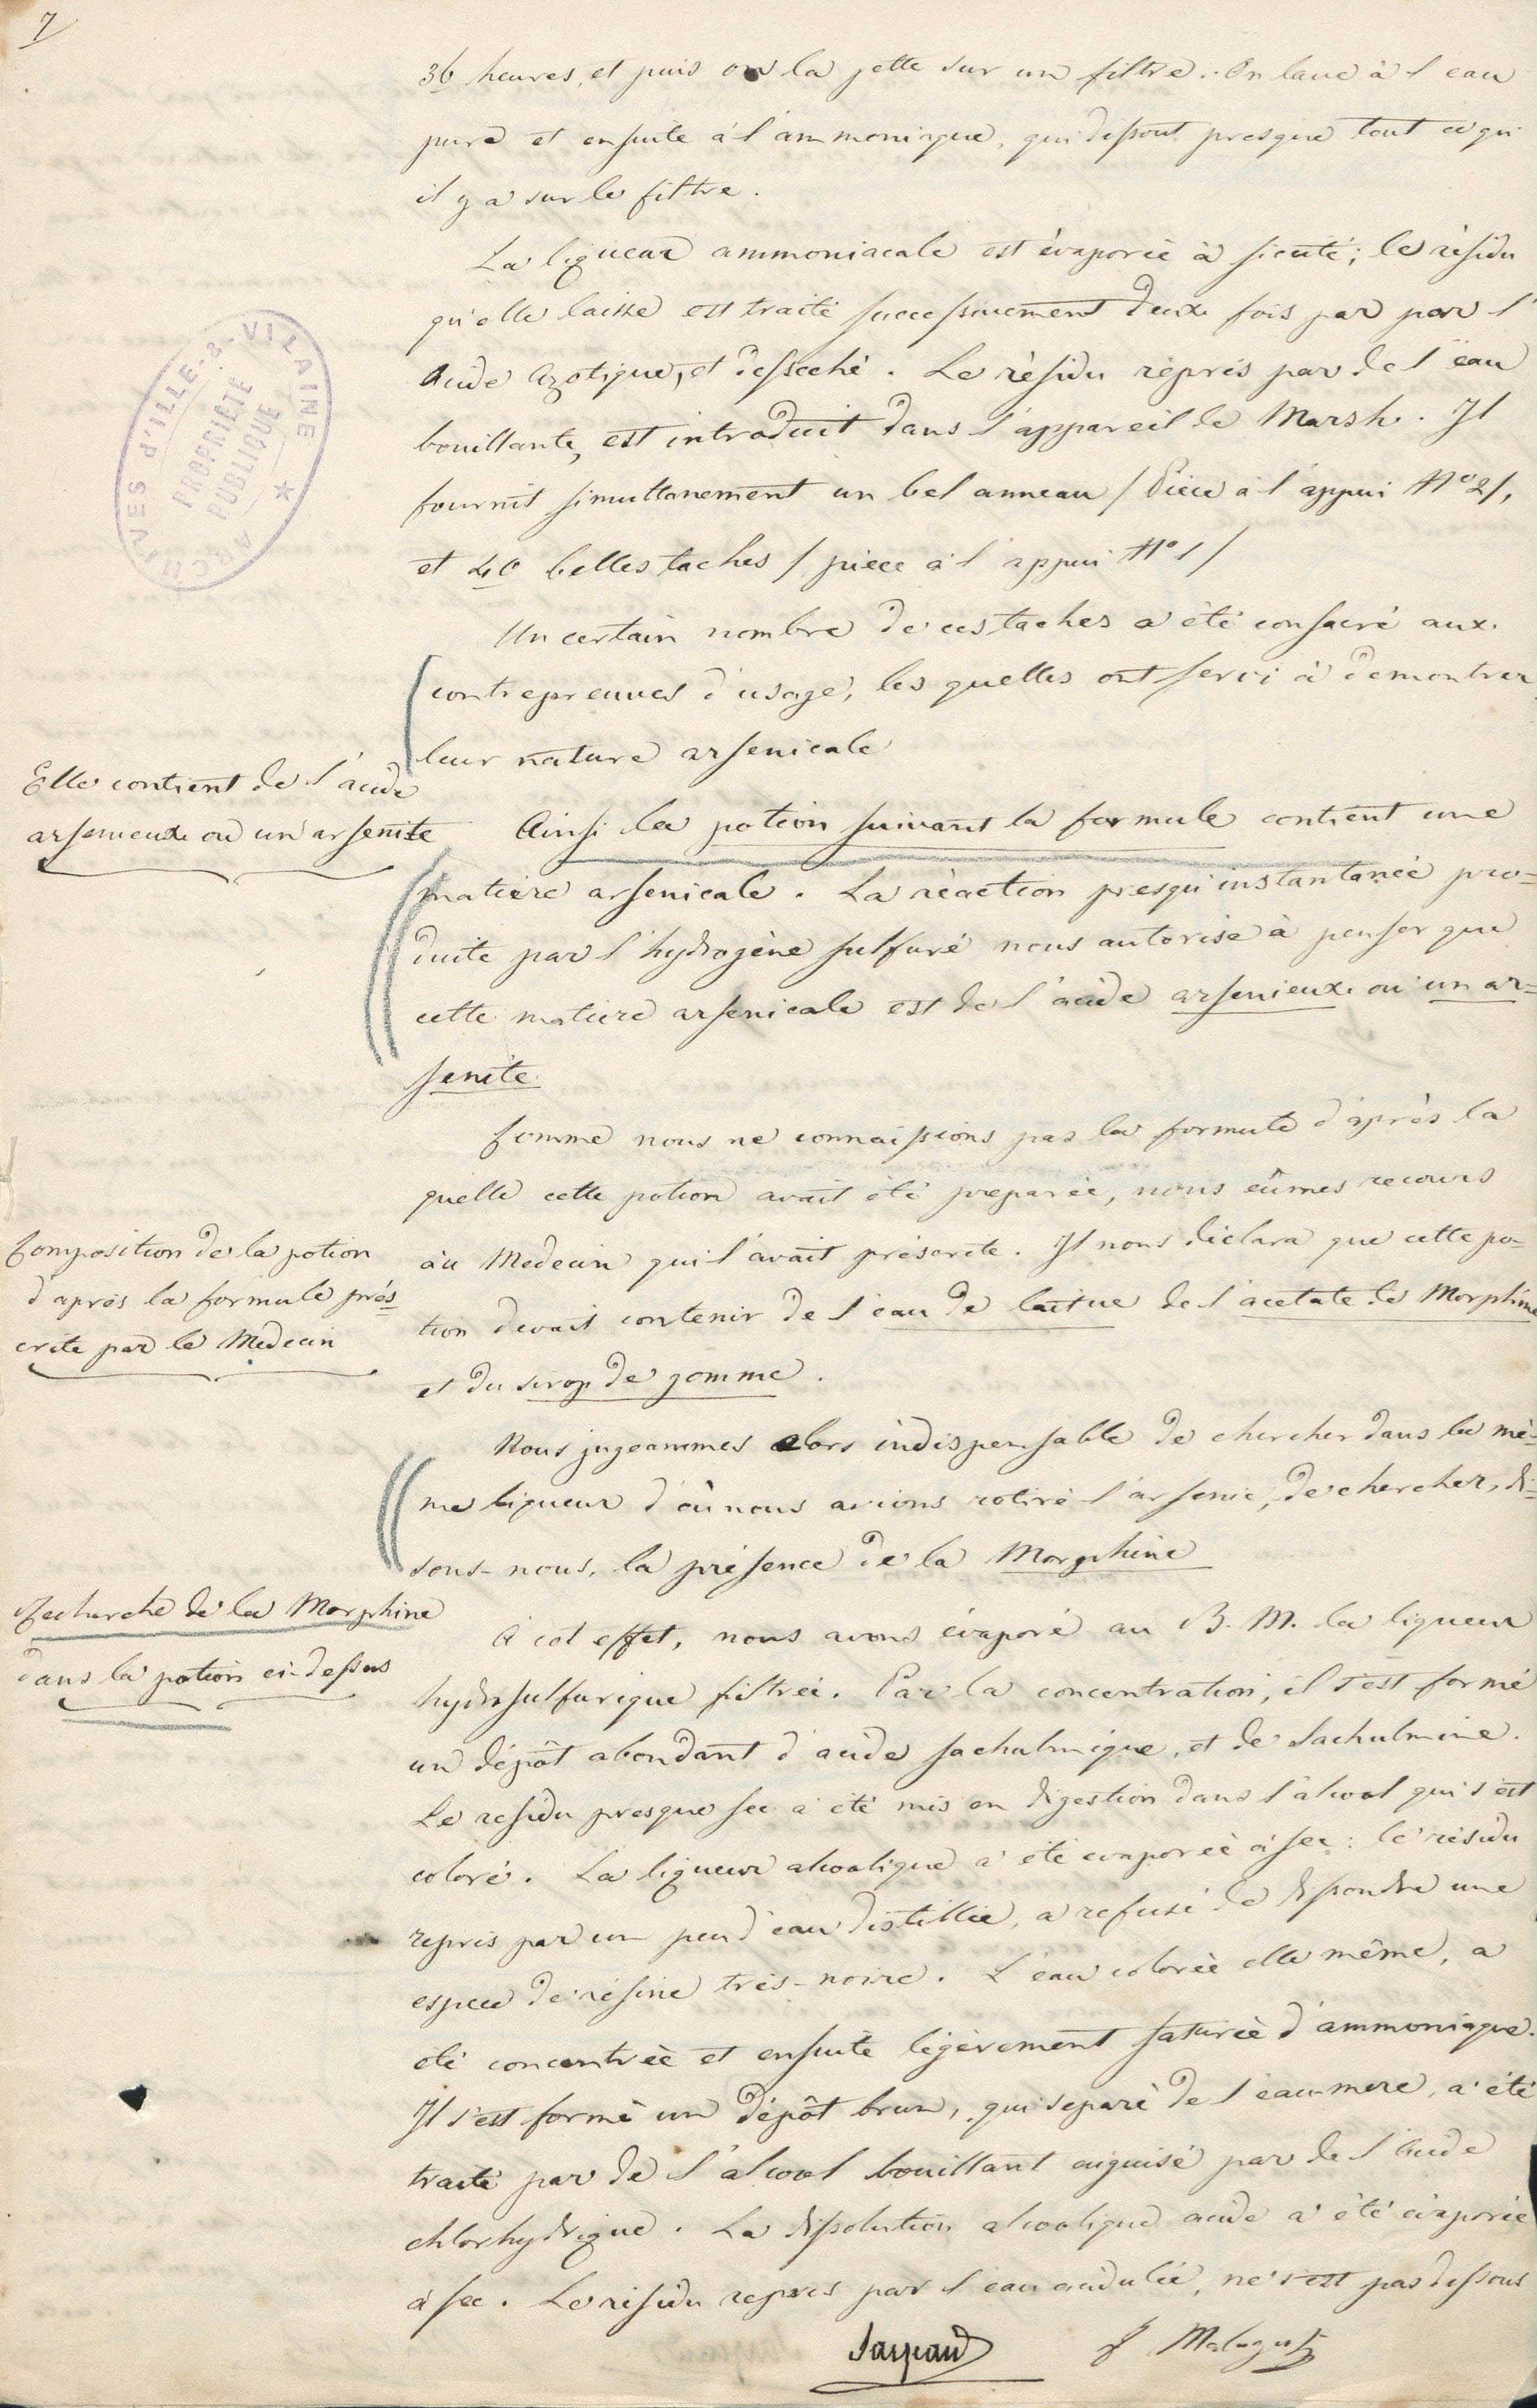 7
36 heures, et puis on la jette sur un filtre. On lave à l'eau
pure et ensuite à l'ammoniaque, qui dissout presque tout ce qu'
il y a sur le filtre.
La liqueur ammoniacale est évaporée à siccité; le résidu
qu'elle laisse est traité successivement deux fois par par l'
Acide Azotique, et desséché. Le résidu répris par de l'eau
bouillante, est introduit dans l'appareil de Marsh. Il
fournit simultanement un bel anneau / Pièce à l'appui N° 2/,
et 40 belles taches / pièce à l'appui N° 1 /
ARCHIVES d'ILLE-&-VILAINE
PROPRIÉTÉ
PUBLIQUE
Un certain nombre de ces taches a été consacré aux
contrepreuves d'usage, les quelles ont servi à demontrer
leur nature arsenicale
Elle contient de l'acide
arsenieux ou un arsenite
Ainsi la potion suivant la formule contient une
matière arsenicale. La réaction presqu'instantanée pro=
duite par l'hydrogène sulfuré nous autorise à penser que
cette matière arsenicale est de l'acide arsenieux ou un ar=
senite.
Comme nous ne connaissions pas la formule d'après la
quelle cette potion avait été preparée, nous eûmes recours
Composition de la potion
d'après la formule prés-
crite par le Médecin
au Medecin qui l'avait préscrite. Il nous déclara que cette po-
tion devait contenir de l'eau de laitue de l'acetate de Morphine
et du sirop de gomme.
Nous jugeammes alors indispensable de chercher dans la mê-
me liqueur d'où nous avions retiré l'arsenic, de chercher, di=
sons-nous, la présence de la Morphine
Recherche de la Morphine
dans la potion ci-dessus
A cet effet, nous avons évaporé au B. M. la liqueur
hydrosulfurique filtrée. Par la concentration, il s'est formé
un dépôt abondant d'acide sachulmique, et de Sachulmine.
Le residu presque sec a été mis en digestion dans l'alcool qui s'est
coloré. La liqueur alcoolique a été evaporée à sec: le résidu
repris par un peu d'eau distillée, a refusé de dissoudre une
espece de résine très-noire. L'eau colorée elle même, a
été concentrée et ensuite légèrement saturée d'ammoniaque.
Il s'est formé un dépôt brun, qui séparé de l'eau-mere, a été
traité par de l'alcool bouillant aiguisé par de l'Acide
chlorhydrique. La dissolution alcoolique acide a été évaporée
à sec. Le résidu repris par l'eau acidulée, ne s'est pas dissous
Sarzeaud F Malaguti